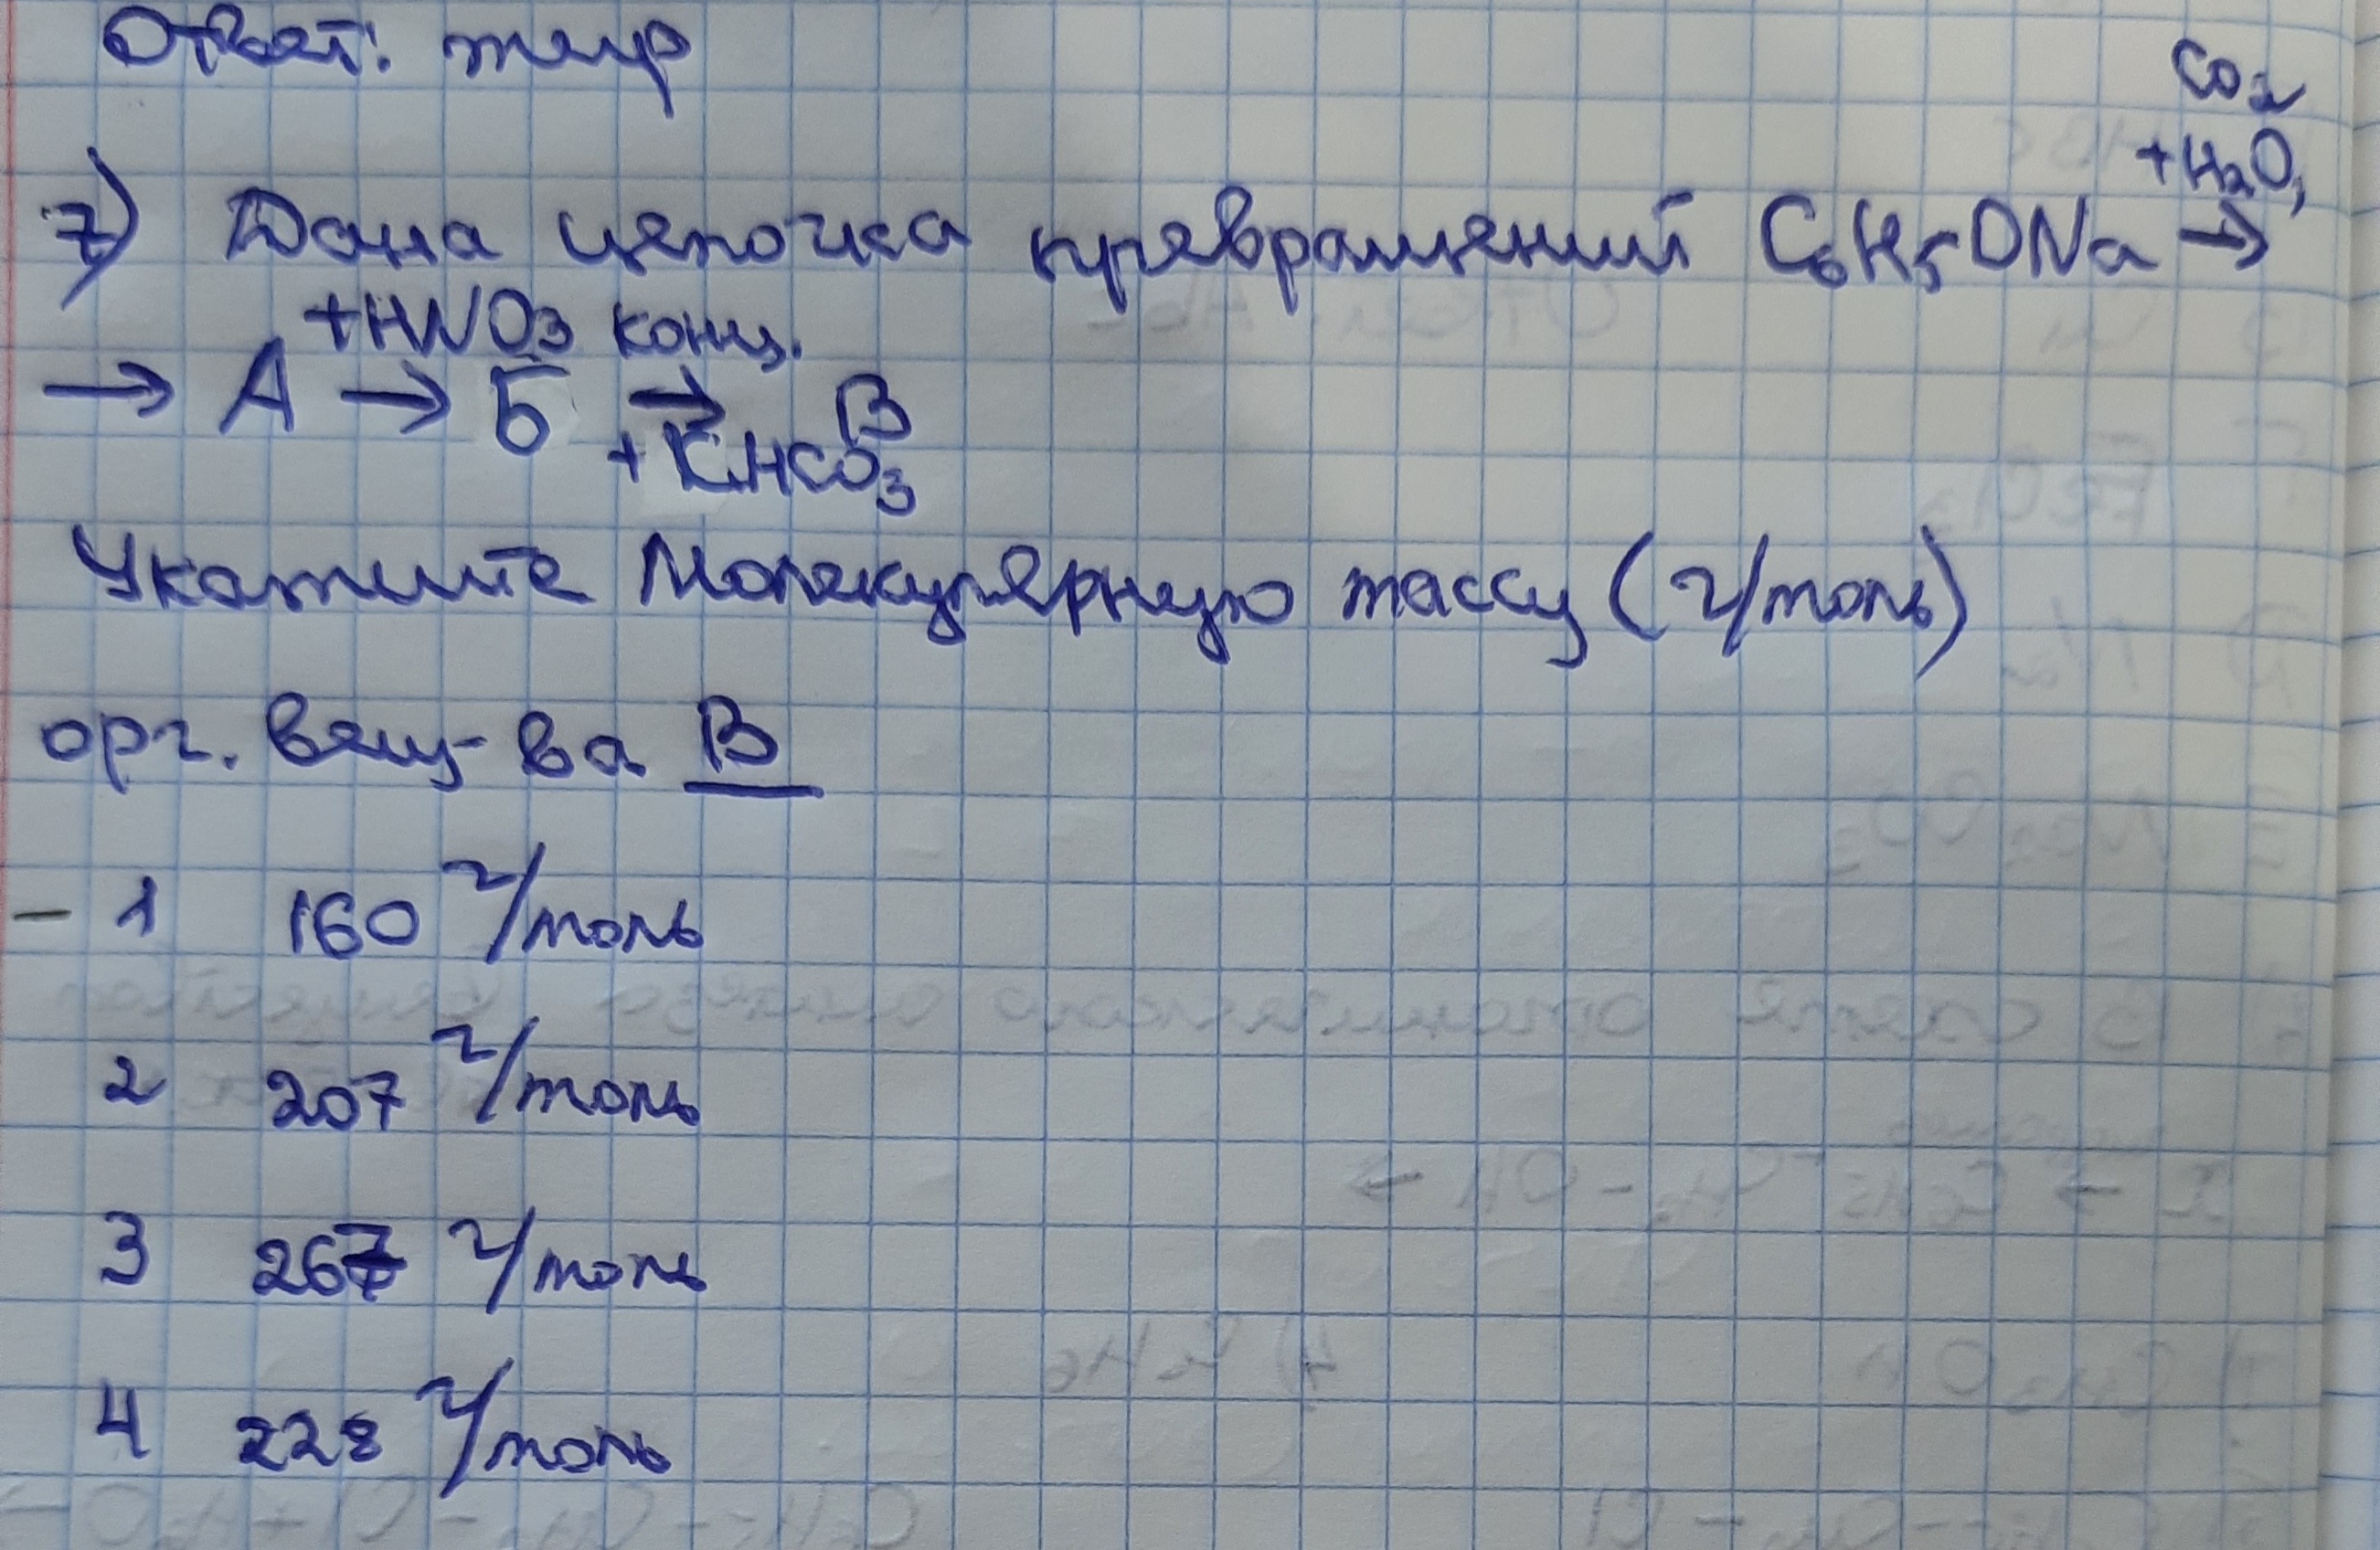 Ответ: жир
CO2
+H2O,
7) Дана цепочка превращений C6H5ONa →
+HNO3 конц.
→ A → Б → В
+KHCO3
Укажите Молекулярную массу (г/моль)
орг. вещ-ва В
- 1 160 г/моль
2 207 г/моль
3 267 г/моль
4 228 г/моль